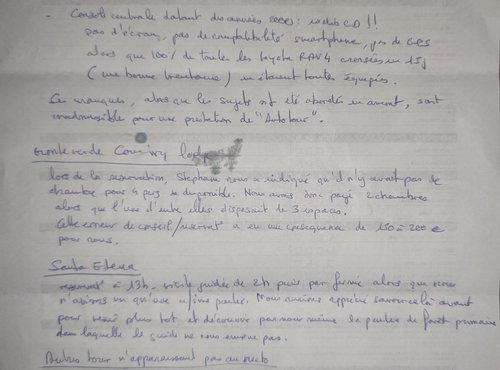 - Console centrale datant des années 2000 : radio CD !!
pas d'écran, pas de compatibilité smartphone, pas de GPS
alors que 100% de toutes les Toyota RAV4 croisées en 15j
(une bonne trentaine) en étaient toutes équipées.
Ces manques, alors que les sujets ont été abordés en amont, sont
inadmissible pour une prestation de "Autotour".
Monteverde Country lodge
lors de la réservation, Stephane nous a indiqué qu'il n'y avait pas de
chambre pour 4 pers disponible. Nous avons donc payé 2 chambres
alors que l'une d'entre elles disposait de 3 espaces.
Cette erreur de conseil/réservat° a eu une conséquence de 150 à 200 €
pour nous.
Santa Elena
à 13h, visite guidée de 2h puis parc fermé alors que nous
n'avions vu qu'une infime partie. Nous aurions apprécié savoir cela avant
pour venir plus tot et découvrir par nous même la partie de forêt primaire
dans laquelle le guide ne nous emmène pas.
Autres tour n'apparaissent pas au recto